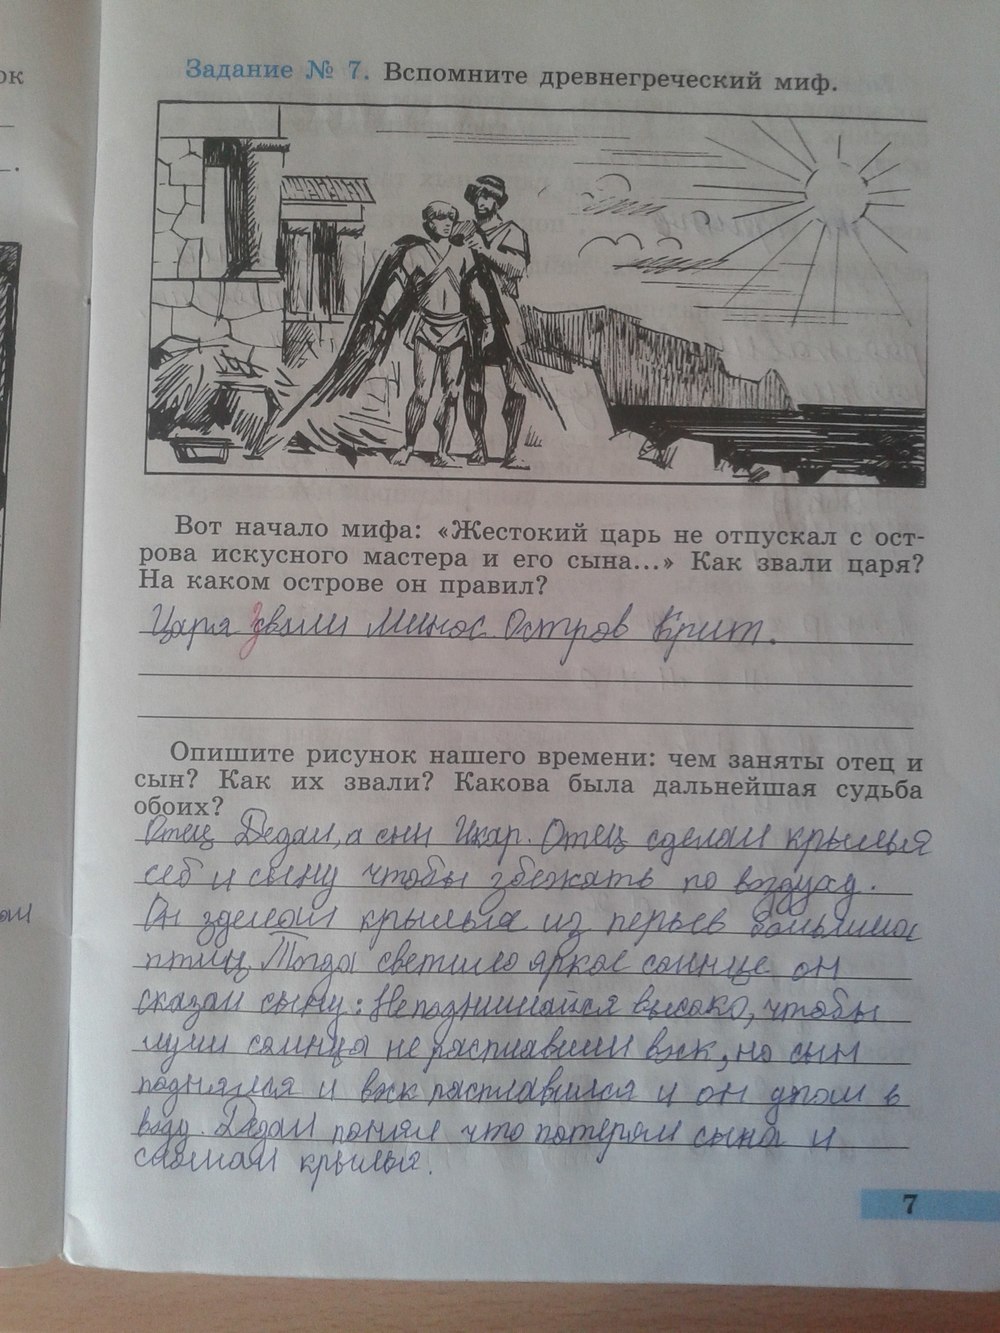 ок
Задание № 7. Вспомните древнегреческий миф.
Вот начало мифа: «Жестокий царь не отпускал с ост-
рова искусного мастера и его сына...» Как звали царя?
На каком острове он правил?
Царя звали Минос. Остров Крит.
Опишите рисунок нашего времени: чем заняты отец и
сын? Как их звали? Какова была дальнейшая судьба
обоих?
Отец Дедал, а сын Икар. Отец сделал крылья
себ и сыну чтобы збежать по воздуху.
Он зделал крылья из перьев больших
птиц. Тогда светило яркое солнце он
сказал сыну: Не поднимайся высоко, чтобы
лучи солнца не расплавили вск, но сын
поднялся и вск расплавился и он упал в
воду. Дедал понял что потерял сына и
сломал крылья.
7